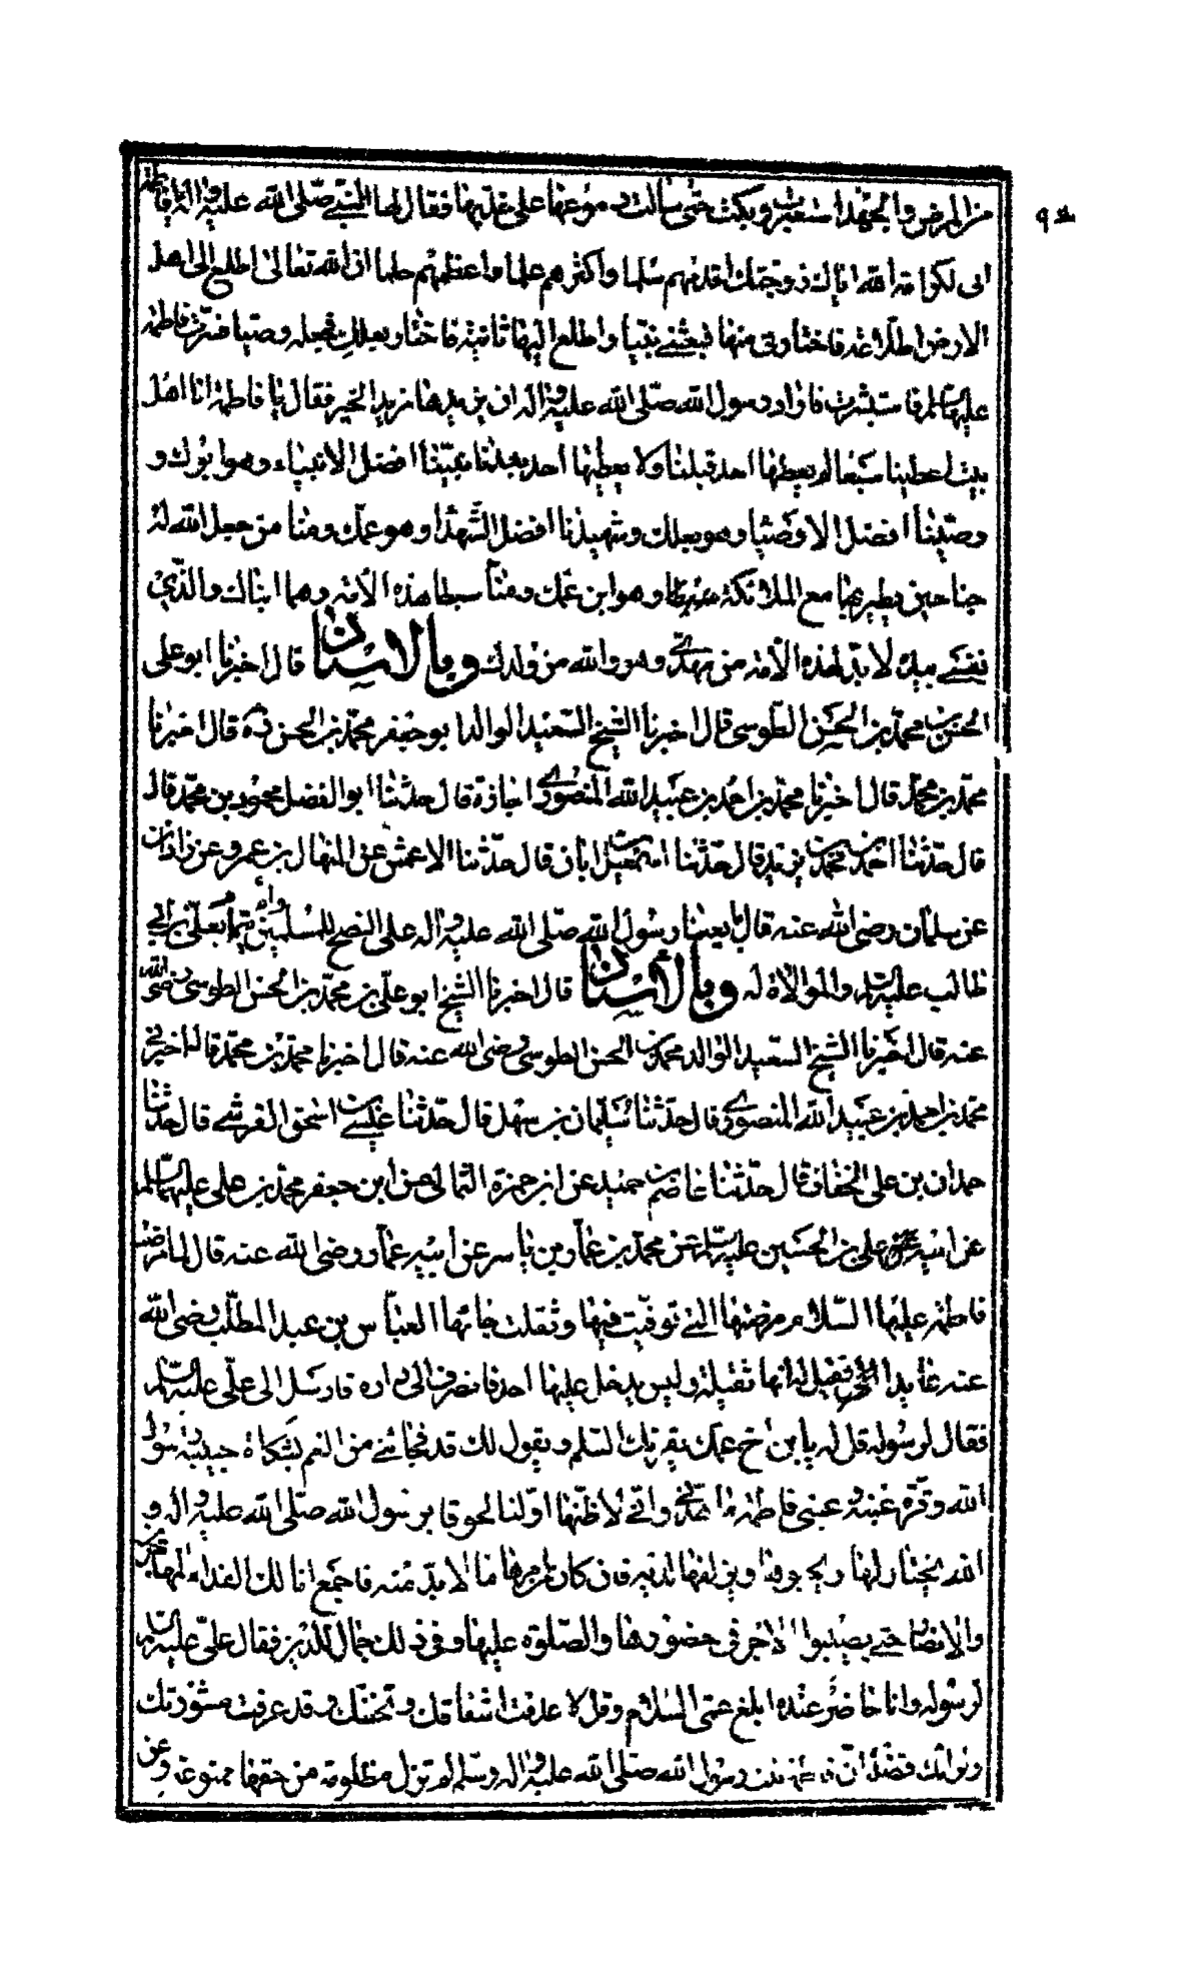 من المرض والجهد استعبرت وبكت حتى سالت دموعها على خديها فقال لها النبي صلى الله عليه واله يا فاطمة
انى لكرامة الله اياك زوجتك اقدمهم سلما واكثرهم علما واعظمهم حلما ان الله تعالى اطلع الى اهل
الارض اطلاعة فاختارنى منها فبعثني نبيا واطلع اليها ثانية فاختار بعلك فجعله وصيا فسرت فاطمة
عليها السلم فاستبشرت فاراد رسول الله صلى الله عليه واله ان يزيدها مزيد الخير فقال يا فاطمة انا اهل
بيت اعطينا سبعا لم يعطها احد قبلنا ولا يعطيها احد بعدنا نبينا افضل الانبياء وهو ابوك و
وصينا افضل الاوصيا وهو بعلك وشهيدنا افضل الشهدا وهو عمك ومنا من جعل الله له
جناحين يطير بهما مع الملائكة وهو ابن عمك ومنا سبطا هذه الامة وهما ابناك والذي
نفسي بيده لا بد لهذه الامة من مهدي وهو والله من ولدك وبالاسناد قال اخبرنا ابو على
الحسن بن محمد بن الحسن الطوسى قال اخبرنا الشيخ السعيد الوالد ابو جعفر محمد بن الحسن ره قال اخبرنا
محمد بن محمد قال اخبرنا محمد بن احمد بن عبيد الله المنصوري اجازة قال حدثنا ابو الفضل محمود بن محمد قال
قال حدثنا احمد بن محمد بن يزيد قال حدثنا اسمعيل بن ابان قال حدثنا الاعمش عن المنهال بن عمرو عن زاذان
عن سلمان رضى الله عنه قال بايعنا رسول الله صلى الله عليه واله على النصح للمسلمين والايتمام بعلى بن ابي
طالب عليه السلم والموالاة له وبالاسناد قال اخبرنا الشيخ ابو على بن محمد بن الحسن الطوسى رضى الله
عنه قال اخبرنا الشيخ السعيد الوالد محمد بن الحسن الطوسى رضى الله عنه قال اخبرنا محمد بن محمد قال اخبرني
محمد بن احمد بن عبيد الله المنصوري قال حدثنا سليمان بن سهل قال حدثنا عيسى بن اسحق القرشي قال حدثنا
حمدان بن على الخفاف قال حدثنا عاصم بن حميد عن ابن حمزة الثمالى عن ابن جعفر محمد بن على عليهما السلم
عن ابيه على بن الحسين عليه السلم عن محمد بن عمار بن ياسر عن ابيه عمار رضى الله عنه قال لما مرضت
فاطمة عليها السلام مرضتها التي توفيت فيها وثقلت جائها العباس بن عبد المطلب رضى الله
عنه عايدا فقيل له انها ثقيلة وليس يدخل عليها احد فانصرف الى داره فارسل الى على عليه السلم
فقال لرسوله قل له يا بن اخ عمك يقريك السلم ويقول لك قد فجائني من الغم بشكاة حبيبة رسول
الله وقرة عينه وعينى فاطمة ما هدني واني لاظنها اولنا لحوقا برسول الله صلى الله عليه واله و
الله يختار لها ويحبوها ويزلفها لديه فان كان من امرها ما لا بد منه فاجمع انا لك الفداء المهاجرين
والانصار حتى يصيبوا الاجر فى حضورها والصلوة عليها وفى ذلك جمال للدين فقال على عليه السلم
لرسوله وانا حاضر عنده ابلغ عمى السلام وقل لا عدمت اشفاقك وتحننك وقد عرفت مشورتك
ولرأيك فضله ان فاطمة بنت رسول الله صلى الله عليه واله وسلم لم تزل مظلومة من حقها ممنوعة وعن